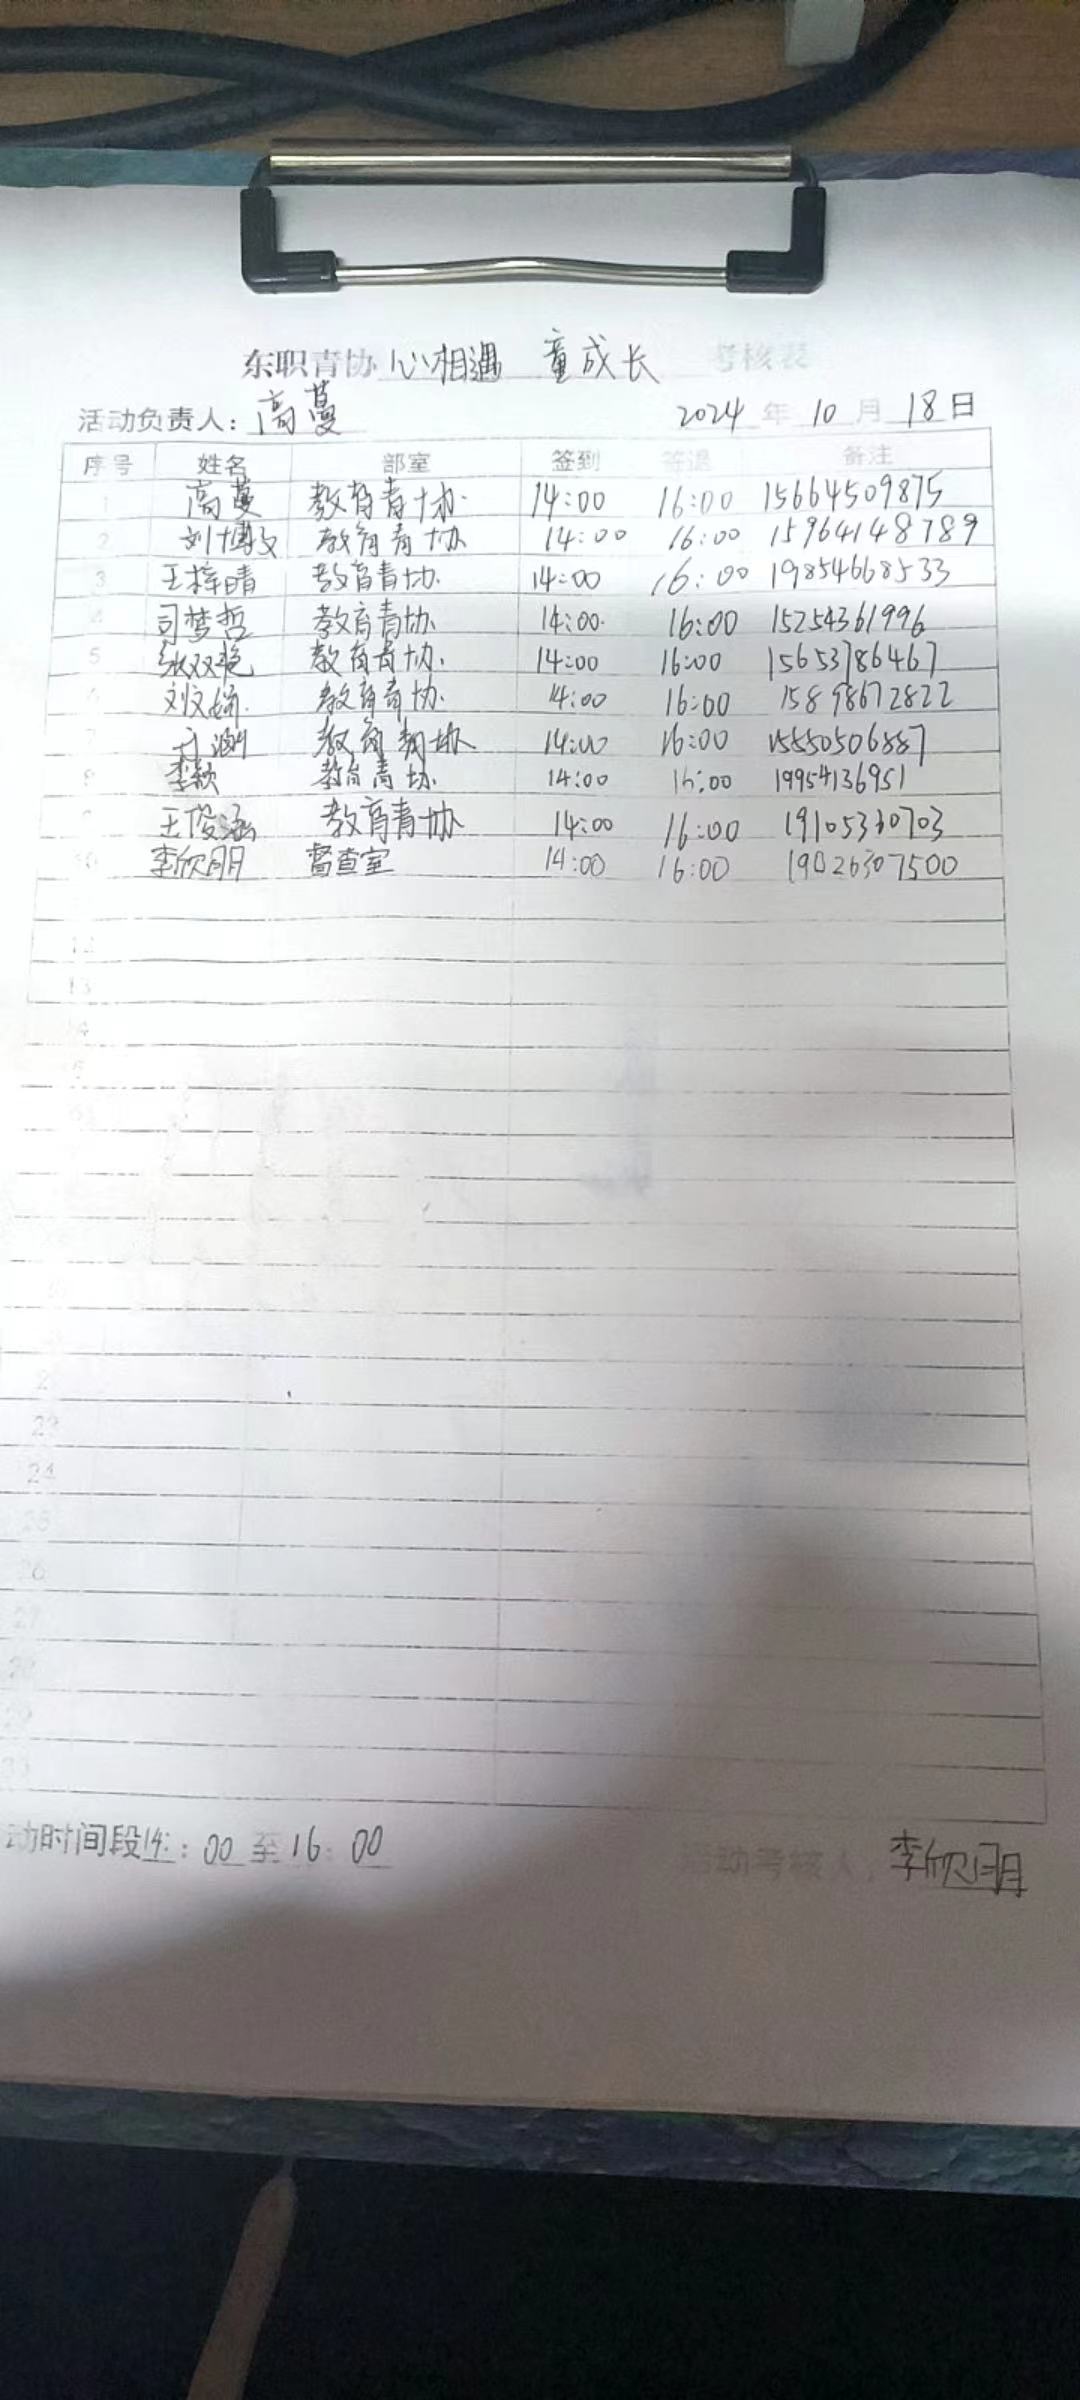 东职青协 心相遇 童成长 考核表
活动负责人：高蔓 2024 年 10 月 18 日
序号 姓名 部室 签到 签退 备注
1 高蔓 教育青协 14:00 16:00 15664509875
2 刘博文 教育青协 14:00 16:00 15964148789
3 王梓晴 教育青协 14:00 16:00 19854668533
4 司梦哲 教育青协 14:00 16:00 15254361996
5 张双艳 教育青协 14:00 16:00 15653786467
6 刘文娇 教育青协 14:00 16:00 15898672822
7 教育青协 14:00 16:00 15550506887
8 李颖 教育青协 14:00 16:00 19954136951
9 王俊涵 教育青协 14:00 16:00 19105330703
10 李欣玥 督查室 14:00 16:00 19026307500
12
13
14
15
22
23
24
25
26
27
28
29
30
动时间段14：00至16：00 活动考核人：李欣玥